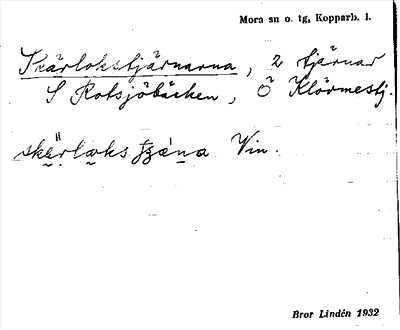 Mora sn o. tg, Kopparb. l.
Skärlokstjärnarna, 2 tjärnar
S Rotsjöbäcken, Ö Klörmestj.
Vin.
Bror Lindén 1932